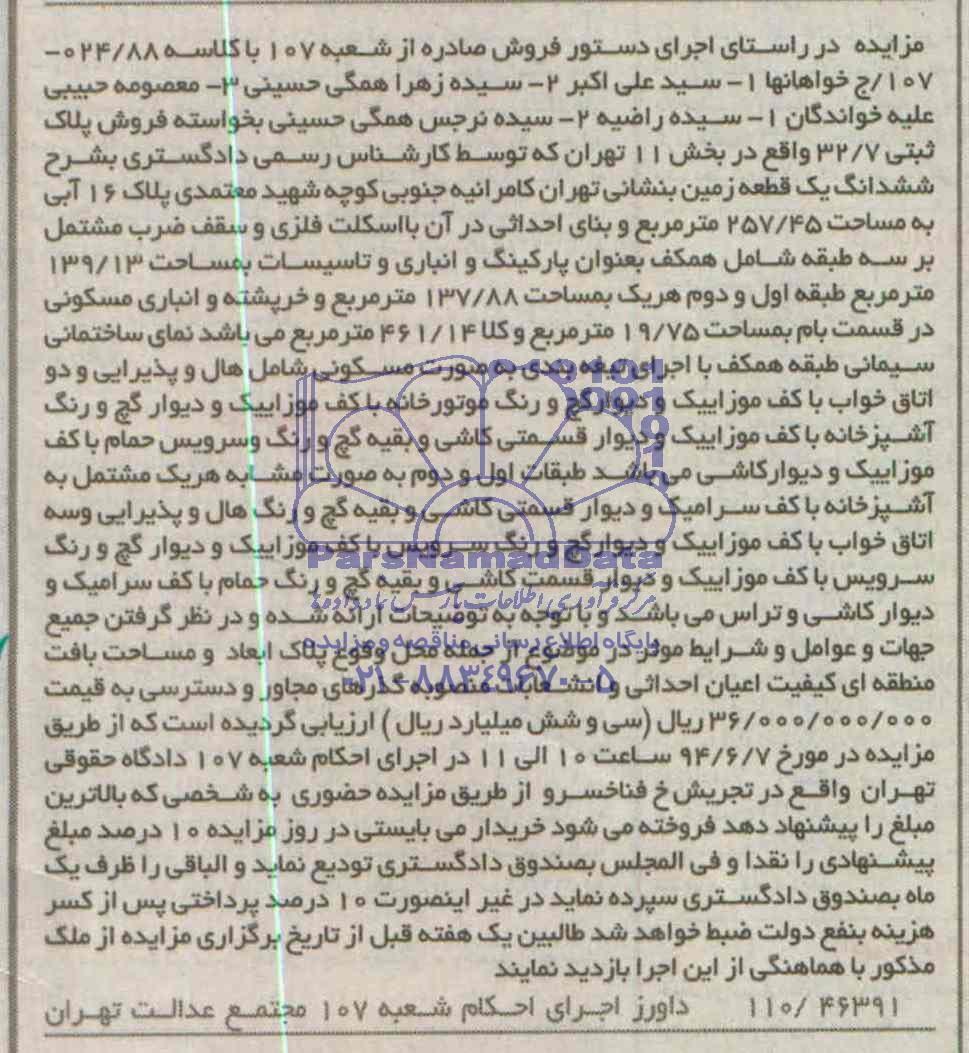 مزایده در راستای اجرای دستور فروش صادره از شعبه ۱۰۷ با کلاسه ۰۲۴/۸۸-
۱۰۷/ج خواهانها ۱- سید علی اکبر ۲- سیده زهرا همگی حسینی ۳- معصومه حبیبی
علیه خواندگان ۱- سیده راضیه ۲- سیده نرجس همگی حسینی بخواسته فروش پلاک
ثبتی ۳۲/۷ واقع در بخش ۱۱ تهران که توسط کارشناس رسمی دادگستری بشرح
ششدانگ یک قطعه زمین بنشانی تهران کامرانیه جنوبی کوچه شهید معتمدی پلاک ۱۶ آبی
به مساحت ۲۵۷/۴۵ مترمربع و بنای احداثی در آن بااسکلت فلزی و سقف ضرب مشتمل
بر سه طبقه شامل همکف بعنوان پارکینگ و انباری و تاسیسات بمساحت ۱۳۹/۱۳
مترمربع طبقه اول و دوم هریک بمساحت ۱۳۷/۸۸ مترمربع و خرپشته و انباری مسکونی
در قسمت بام بمساحت ۱۹/۷۵ مترمربع و کلا ۴۶۱/۱۴ مترمربع می باشد نمای ساختمانی
سیمانی طبقه همکف با اجرای تیغه بندی به صورت مسکونی شامل هال و پذیرایی و دو
اتاق خواب با کف موزاییک و دیوارگچ و رنگ موتورخانه با کف موزاییک و دیوار گچ و رنگ
آشپزخانه با کف موزاییک و دیوار قسمتی کاشی و بقیه گچ و رنگ وسرویس حمام با کف
موزاییک و دیوارکاشی می باشد طبقات اول و دوم به صورت مشابه هریک مشتمل به
آشپزخانه با کف سرامیک و دیوار قسمتی کاشی و بقیه گچ و رنگ هال و پذیرایی وسه
اتاق خواب با کف موزاییک و دیوارگچ و رنگ سرویس با کف موزاییک و دیوار گچ و رنگ
ParsNamadData
سرویس با کف موزاییک و دیوار قسمت کاشی و بقیه گچ و رنگ حمام با کف سرامیک و
مرکز فرآوری اطلاعات پارس نماد داده‌ها
دیوار کاشی و تراس می باشد و با توجه به توضیحات ارائه شده و در نظر گرفتن جمیع
پایگاه اطلاع رسانی مناقصه و مزایده
جهات و عوامل و شرایط موثر در موضوع از جمله محل وقوع پلاک ابعاد و مساحت بافت
۰۲۱-۸۸۳۴۹۶۷۰-۵
منطقه ای کیفیت اعیان احداثی و انشعابات منصوبه گذرهای مجاور و دسترسی به قیمت
۳۶/۰۰۰/۰۰۰/۰۰۰ ریال (سی و شش میلیارد ریال) ارزیابی گردیده است که از طریق
مزایده در مورخ ۹۴/۶/۷ ساعت ۱۰ الی ۱۱ در اجرای احکام شعبه ۱۰۷ دادگاه حقوقی
تهران واقع در تجریش خ فناخسرو از طریق مزایده حضوری به شخصی که بالاترین
مبلغ را پیشنهاد دهد فروخته می شود خریدار می بایستی در روز مزایده ۱۰ درصد مبلغ
پیشنهادی را نقدا و فی المجلس بصندوق دادگستری تودیع نماید و الباقی را ظرف یک
ماه بصندوق دادگستری سپرده نماید در غیر اینصورت ۱۰ درصد پرداختی پس از کسر
هزینه بنفع دولت ضبط خواهد شد طالبین یک هفته قبل از تاریخ برگزاری مزایده از ملک
مذکور با هماهنگی از این اجرا بازدید نمایند
۱۱۰/ ۴۶۳۹۱ داورز اجرای احکام شعبه ۱۰۷ مجتمع عدالت تهران